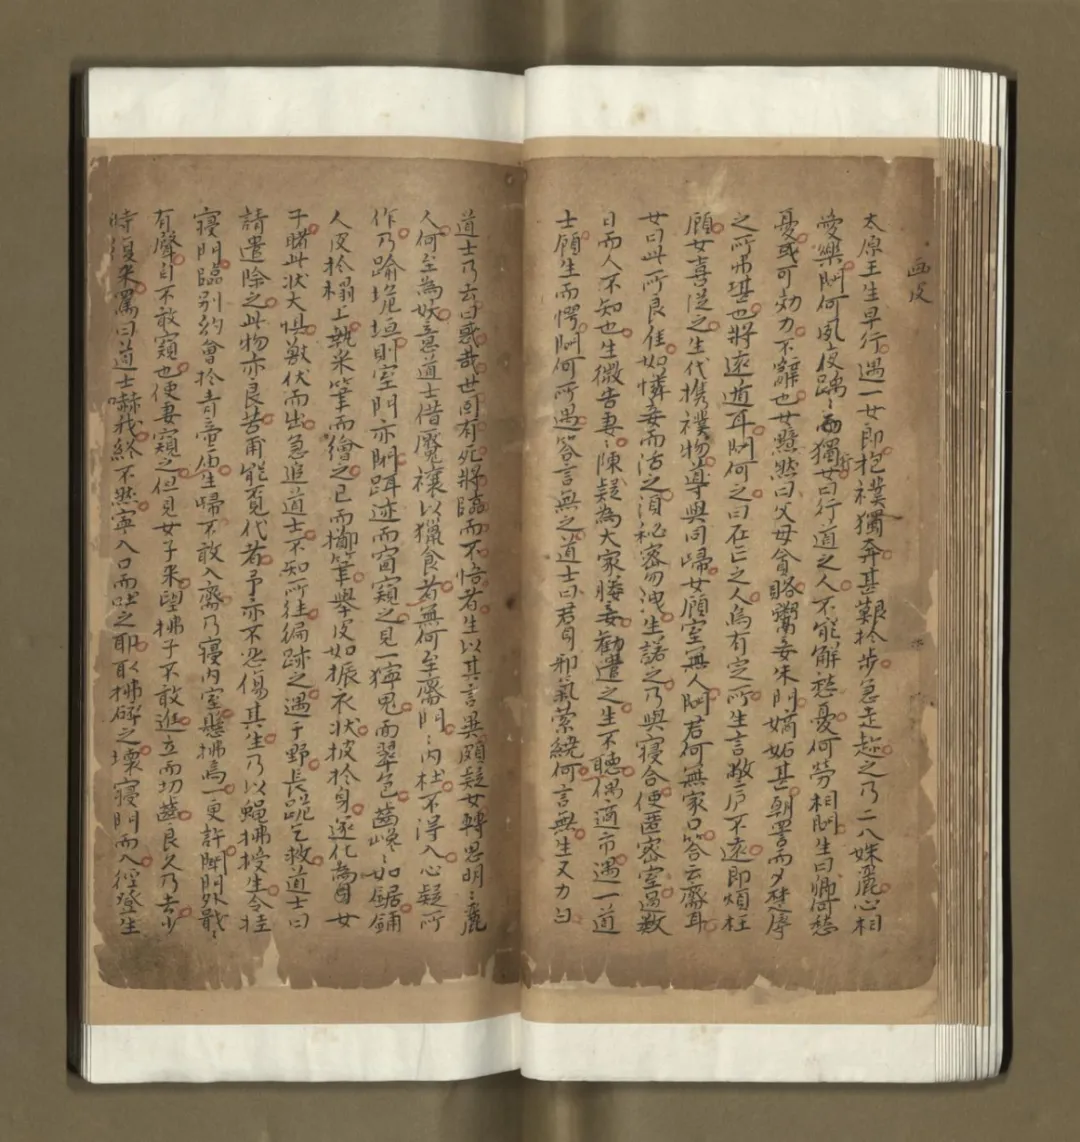 画皮
太原王生早行遇一女郎抱襆獨奔甚艱於步急走趁之乃二八姝麗心相
愛樂問何夙夜踽〻獨行女曰行道之人不能解愁憂何勞相問生曰卿何愁
憂或可効力不辭也女黯然曰父母貪賂鬻妾朱門嫡妬甚朝詈而夕楚辱
之所弗堪也將遠遁耳問何之曰在亡之人烏有定所生言敝廬不遠即煩枉
顧女喜從之生代攜襆物導與同歸女顧室無人問君何無家口答云齋耳
女曰此所良佳如憐妾而活之須秘密勿洩生諾之乃與寢合使匿密室過數
日而人不知也生微告妻〻陳疑為大家媵妾勸遣之生不聽偶適市遇一道
士顧生而愕問何所遇答言無之道士曰君身邪氣縈繞何言無生又力白
道士乃去曰惑哉世固有死將臨而不悟者生以其言異頗疑女轉思明〻麗
人何至為妖意道士借魘禳以獵食者無何至齋門〻內杜不得入心疑所
作乃踰垝垣則室門亦閉躡迹而窗窺之見一獰鬼面翠色齒巉〻如鋸鋪
人皮於榻上執采筆而繪之已而擲筆舉皮如振衣狀披於身遂化為女
子睹此狀大懼獸伏而出急追道士不知所往徧跡之遇于野長跪乞救道士曰
請遣除之此物亦良苦甫能覓代者予亦不忍傷其生乃以蠅拂授生令挂
寢門臨別約會於青帝廟生歸不敢入齋乃寢內室懸拂焉一更許聞門外戢〻
有聲自不敢窺也使妻窺之但見女子來望拂子不敢進立而切齒良久乃去少
時復來罵曰道士嚇我終不然寧入口而吐之耶取拂碎之壞寢門而入徑登生